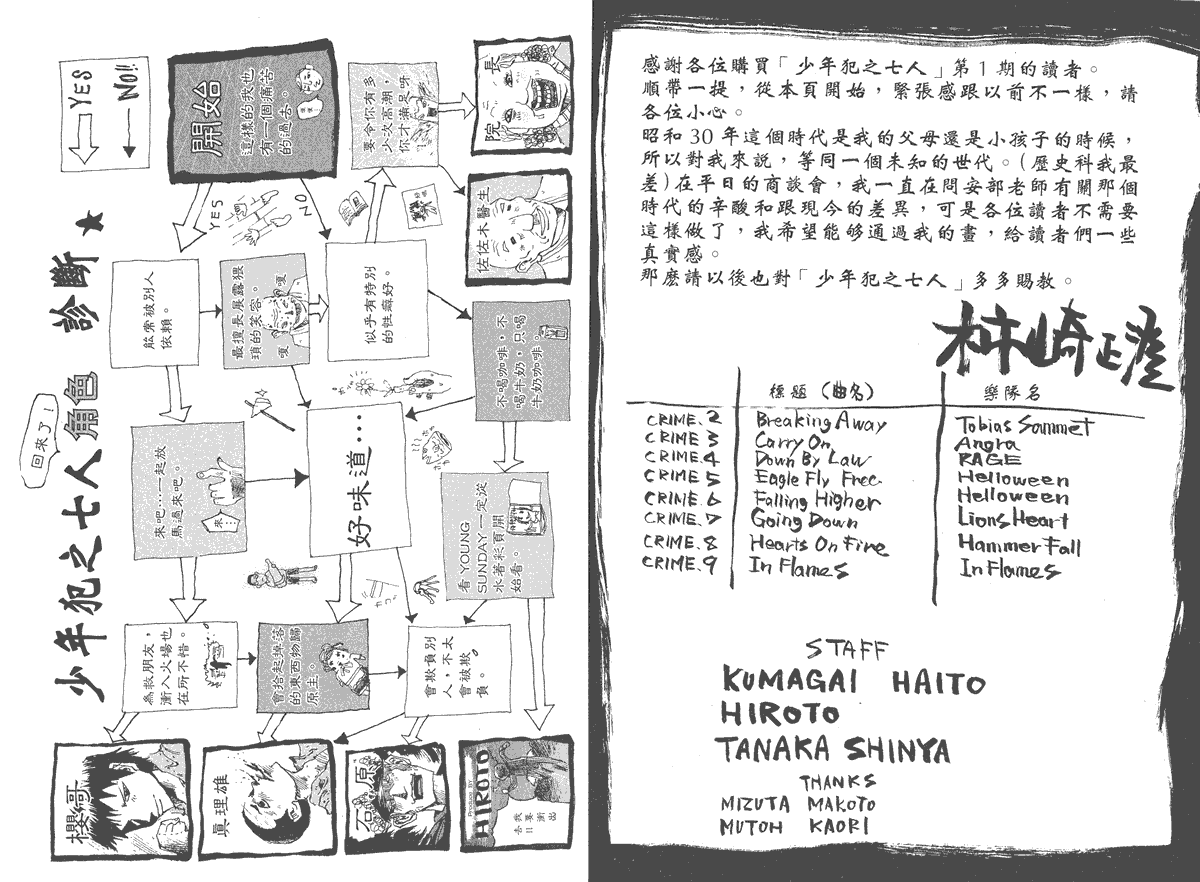 少年犯之七人角色 診斷 ★
回來了!
YES
No!!
開始
這樣的我也
有一個痛苦
的過去。
YES
NO
要令你有多
少次高潮,
你才滿足呀
院長
佐佐木醫生
能常被別人
依賴。
最擅長展露猥
瑣的笑容。
嗄
嗄
似乎有特別
的性癖好。
不喝咖啡,不
喝牛奶,只喝
牛奶咖啡。
來吧…一起放
馬過來吧。
來…
好味道…
看YOUNG
SUNDAY一定從
水著彩頁開
始看。
為救朋友,
衝入火場也
在所不惜。
會拾起掉落
的東西物歸
原主。
會欺負別
人,不太
會被欺
負。
櫻哥
真理雄
石原
HIROTO
感謝各位購買「少年犯之七人」第1期的讀者。
順帶一提,從本頁開始,緊張感跟以前不一樣,請
各位小心。
昭和30年這個時代是我的父母還是小孩子的時候,
所以對我來說,等同一個未知的世代。(歷史科我最
差)在平日的商談會,我一直在問安部老師有關那個
時代的辛酸和跟現今的差異,可是各位讀者不需要
這樣做了,我希望能够通過我的畫,給讀者們一些
真實感。
那麼請以後也對「少年犯之七人」多多賜教。
柿崎正澄
標題(曲名) 樂隊名
CRIME.2 Breaking Away Tobias Sammet
CRIME 3 Carry On Angra
CRIME.4 Down By Law RAGE
CRIME 5 Eagle Fly Free Helloween
CRIME.6 Falling Higher Helloween
CRIME.7 Going Down Lions Heart
CRIME.8 Hearts On Fire Hammer Fall
CRIME.9 In Flames In Flames
STAFF
KUMAGAI HAITO
HIROTO
TANAKA SHINYA
THANKS
MIZUTA MAKOTO
MUTOH KAORI